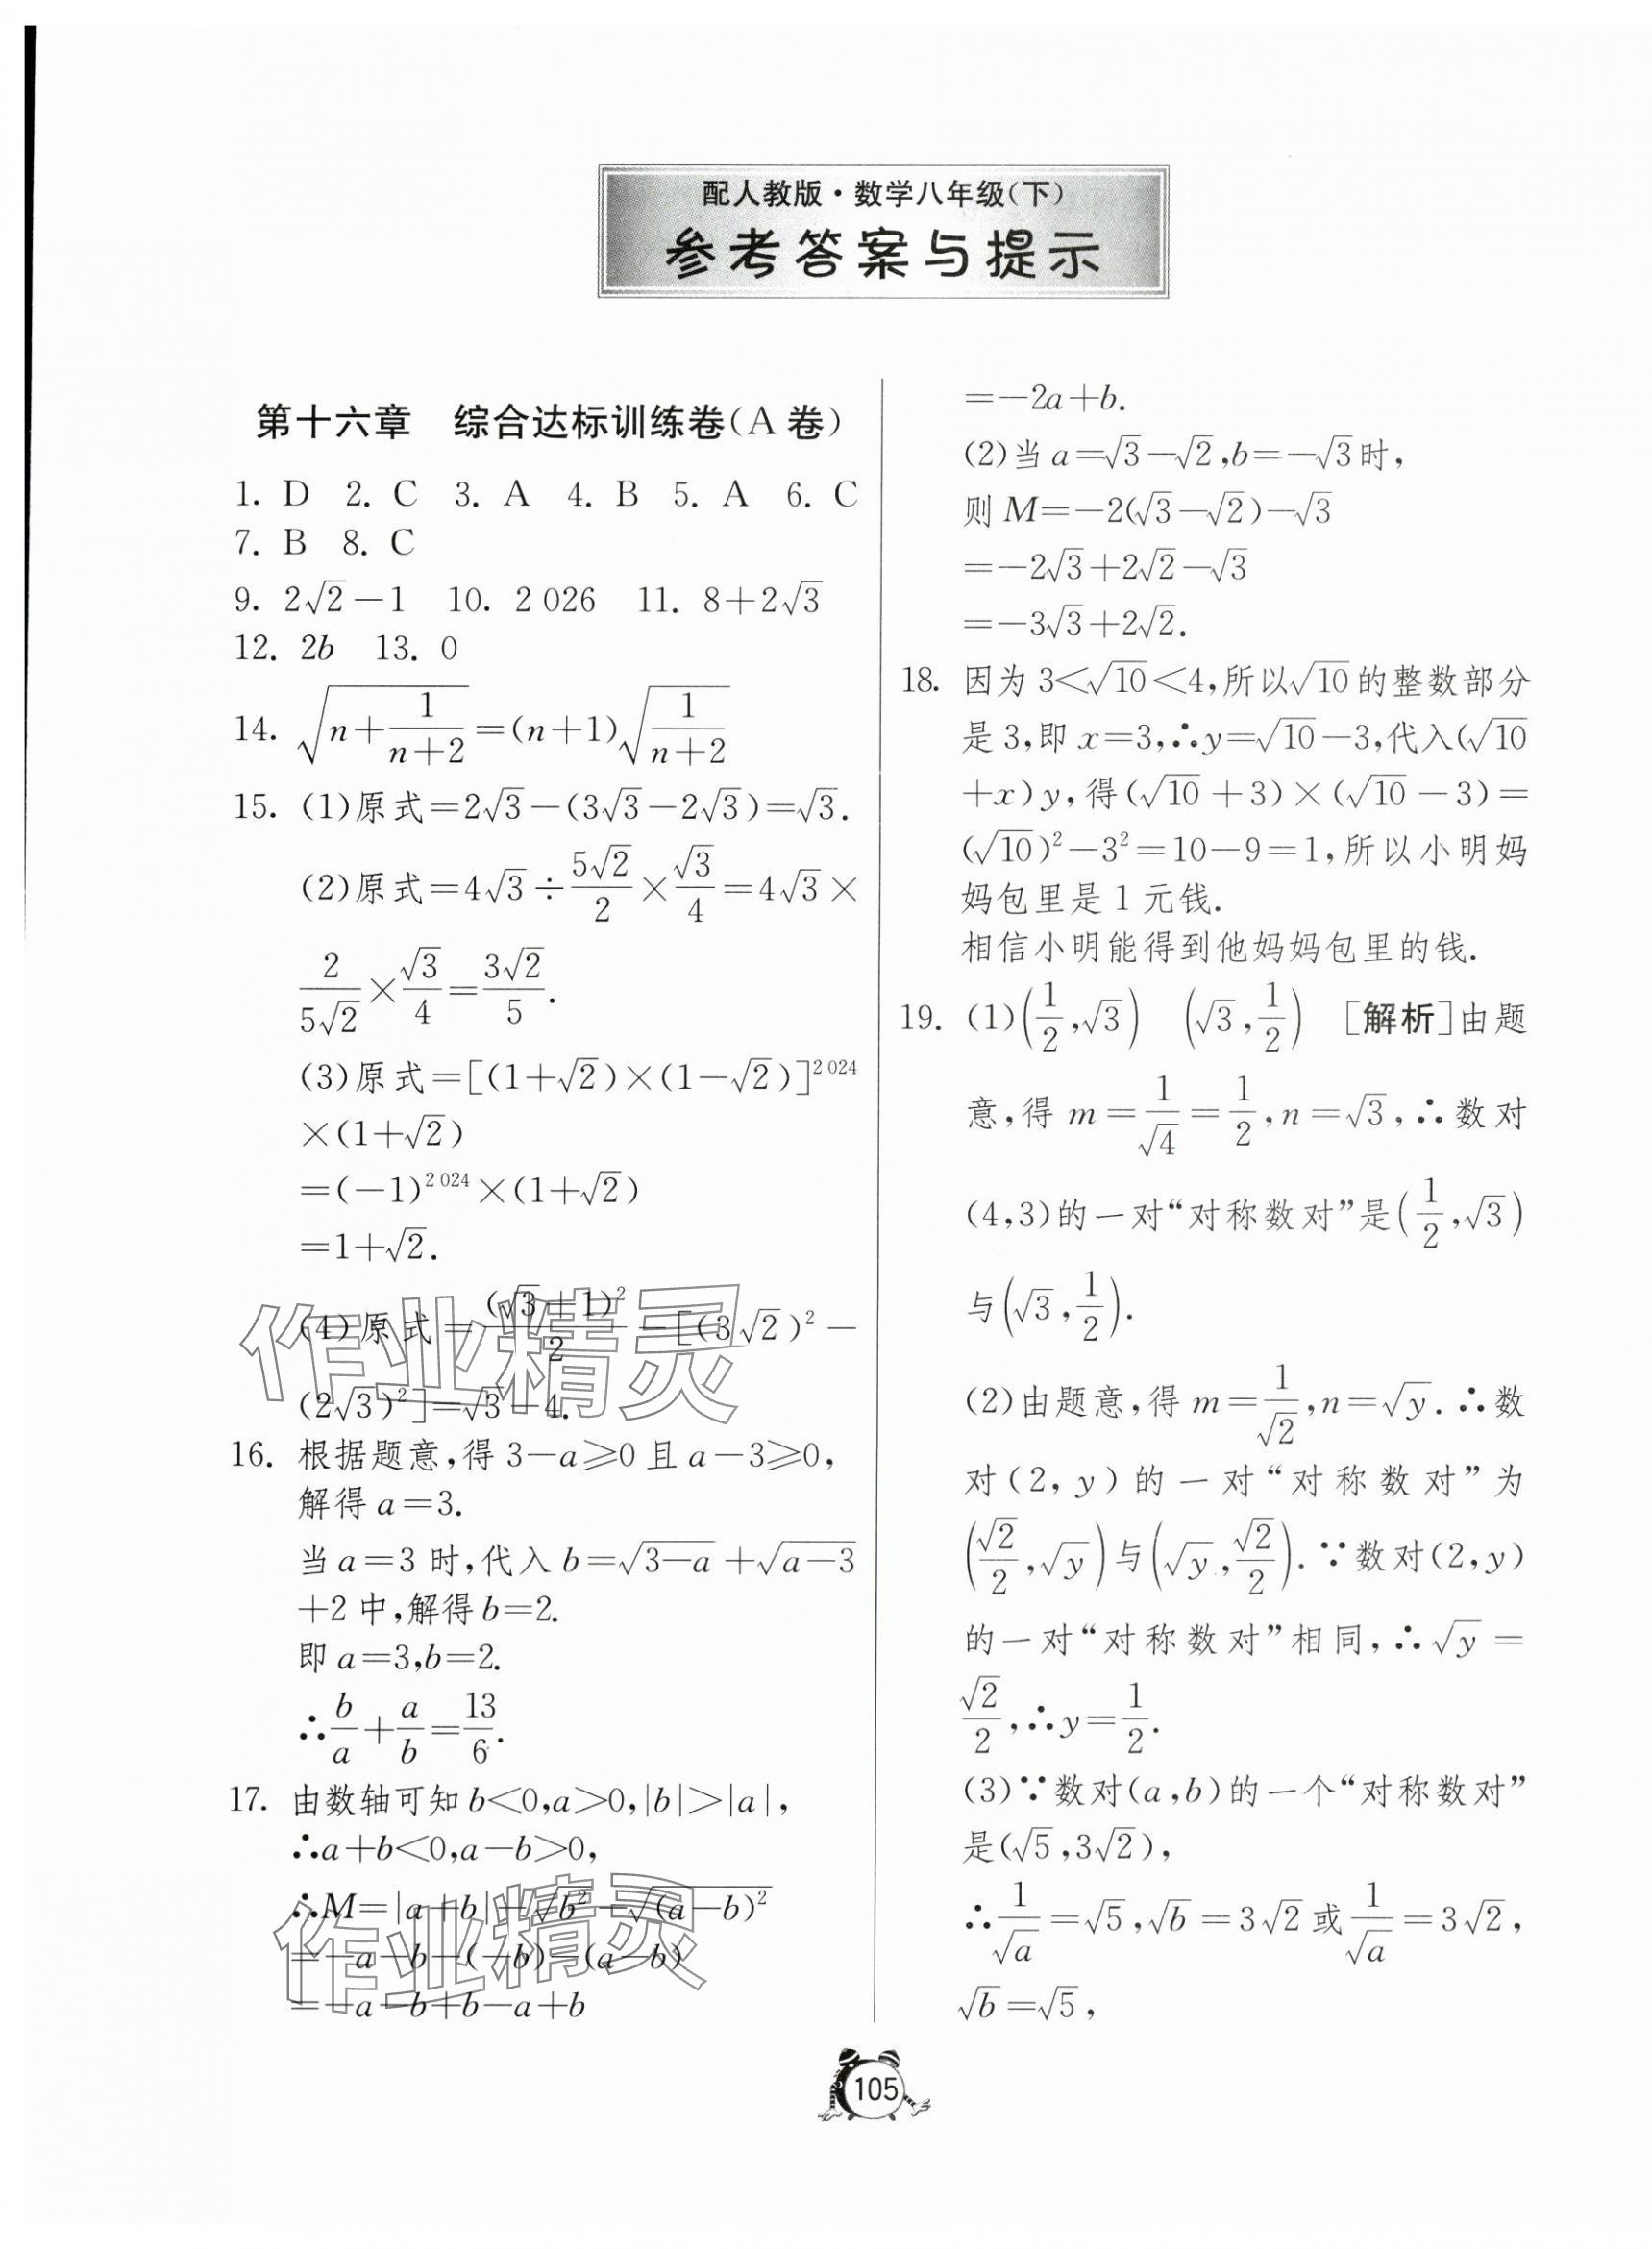 配人教版·数学八年级(下)
参考答案与提示
第十六章 综合达标训练卷(A卷)
1. D 2. C 3. A 4. B 5. A 6. C
7. B 8. C
9. 2√2−1 10. 2 026 11. 8+2√3
12. 2b 13. 0
14. √(n+1/(n+2))=(n+1)√(1/(n+2))
15. (1)原式=2√3−(3√3−2√3)=√3.
(2)原式=4√3÷5√2/2×√3/4=4√3×
2/(5√2)×√3/4=3√2/5.
(3)原式=[(1+√2)×(1−√2)]^2 024
×(1+√2)
=(−1)^2 024×(1+√2)
=1+√2.
(4)原式=(√3+1)²/2−[(3√2)²−
(2√3)²]=√3−4.
16. 根据题意,得3−a≥0且a−3≥0,
解得a=3.
当a=3时,代入b=√(3−a)+√(a−3)
+2中,解得b=2.
即a=3,b=2.
∴b/a+a/b=13/6.
17. 由数轴可知b<0,a>0,|b|>|a|,
∴a+b<0,a−b>0,
∴M=|a+b|−√b²−√(a−b)²
=−a−b−(−b)−(a−b)
=−a−b+b−a+b
=−2a+b.
(2)当a=√3−√2,b=−√3时,
则M=−2(√3−√2)−√3
=−2√3+2√2−√3
=−3√3+2√2.
18. 因为3<√10<4,所以√10的整数部分
是3,即x=3,∴y=√10−3,代入(√10
+x)y,得(√10+3)×(√10−3)=
(√10)²−3²=10−9=1,所以小明妈
妈包里是1元钱.
相信小明能得到他妈妈包里的钱.
19. (1)(1/2,√3) (√3,1/2) [解析]由题
意,得m=1/√4=1/2,n=√3,∴数对
(4,3)的一对“对称数对”是(1/2,√3)
与(√3,1/2).
(2)由题意,得m=1/√2,n=√y.∴数
对(2,y)的一对“对称数对”为
(√2/2,√y)与(√y,√2/2).∵数对(2,y)
的一对“对称数对”相同,∴√y=
√2/2,∴y=1/2.
(3)∵数对(a,b)的一个“对称数对”
是(√5,3√2),
∴1/√a=√5,√b=3√2或1/√a=3√2,
√b=√5,
105
作业精灵
作业精灵